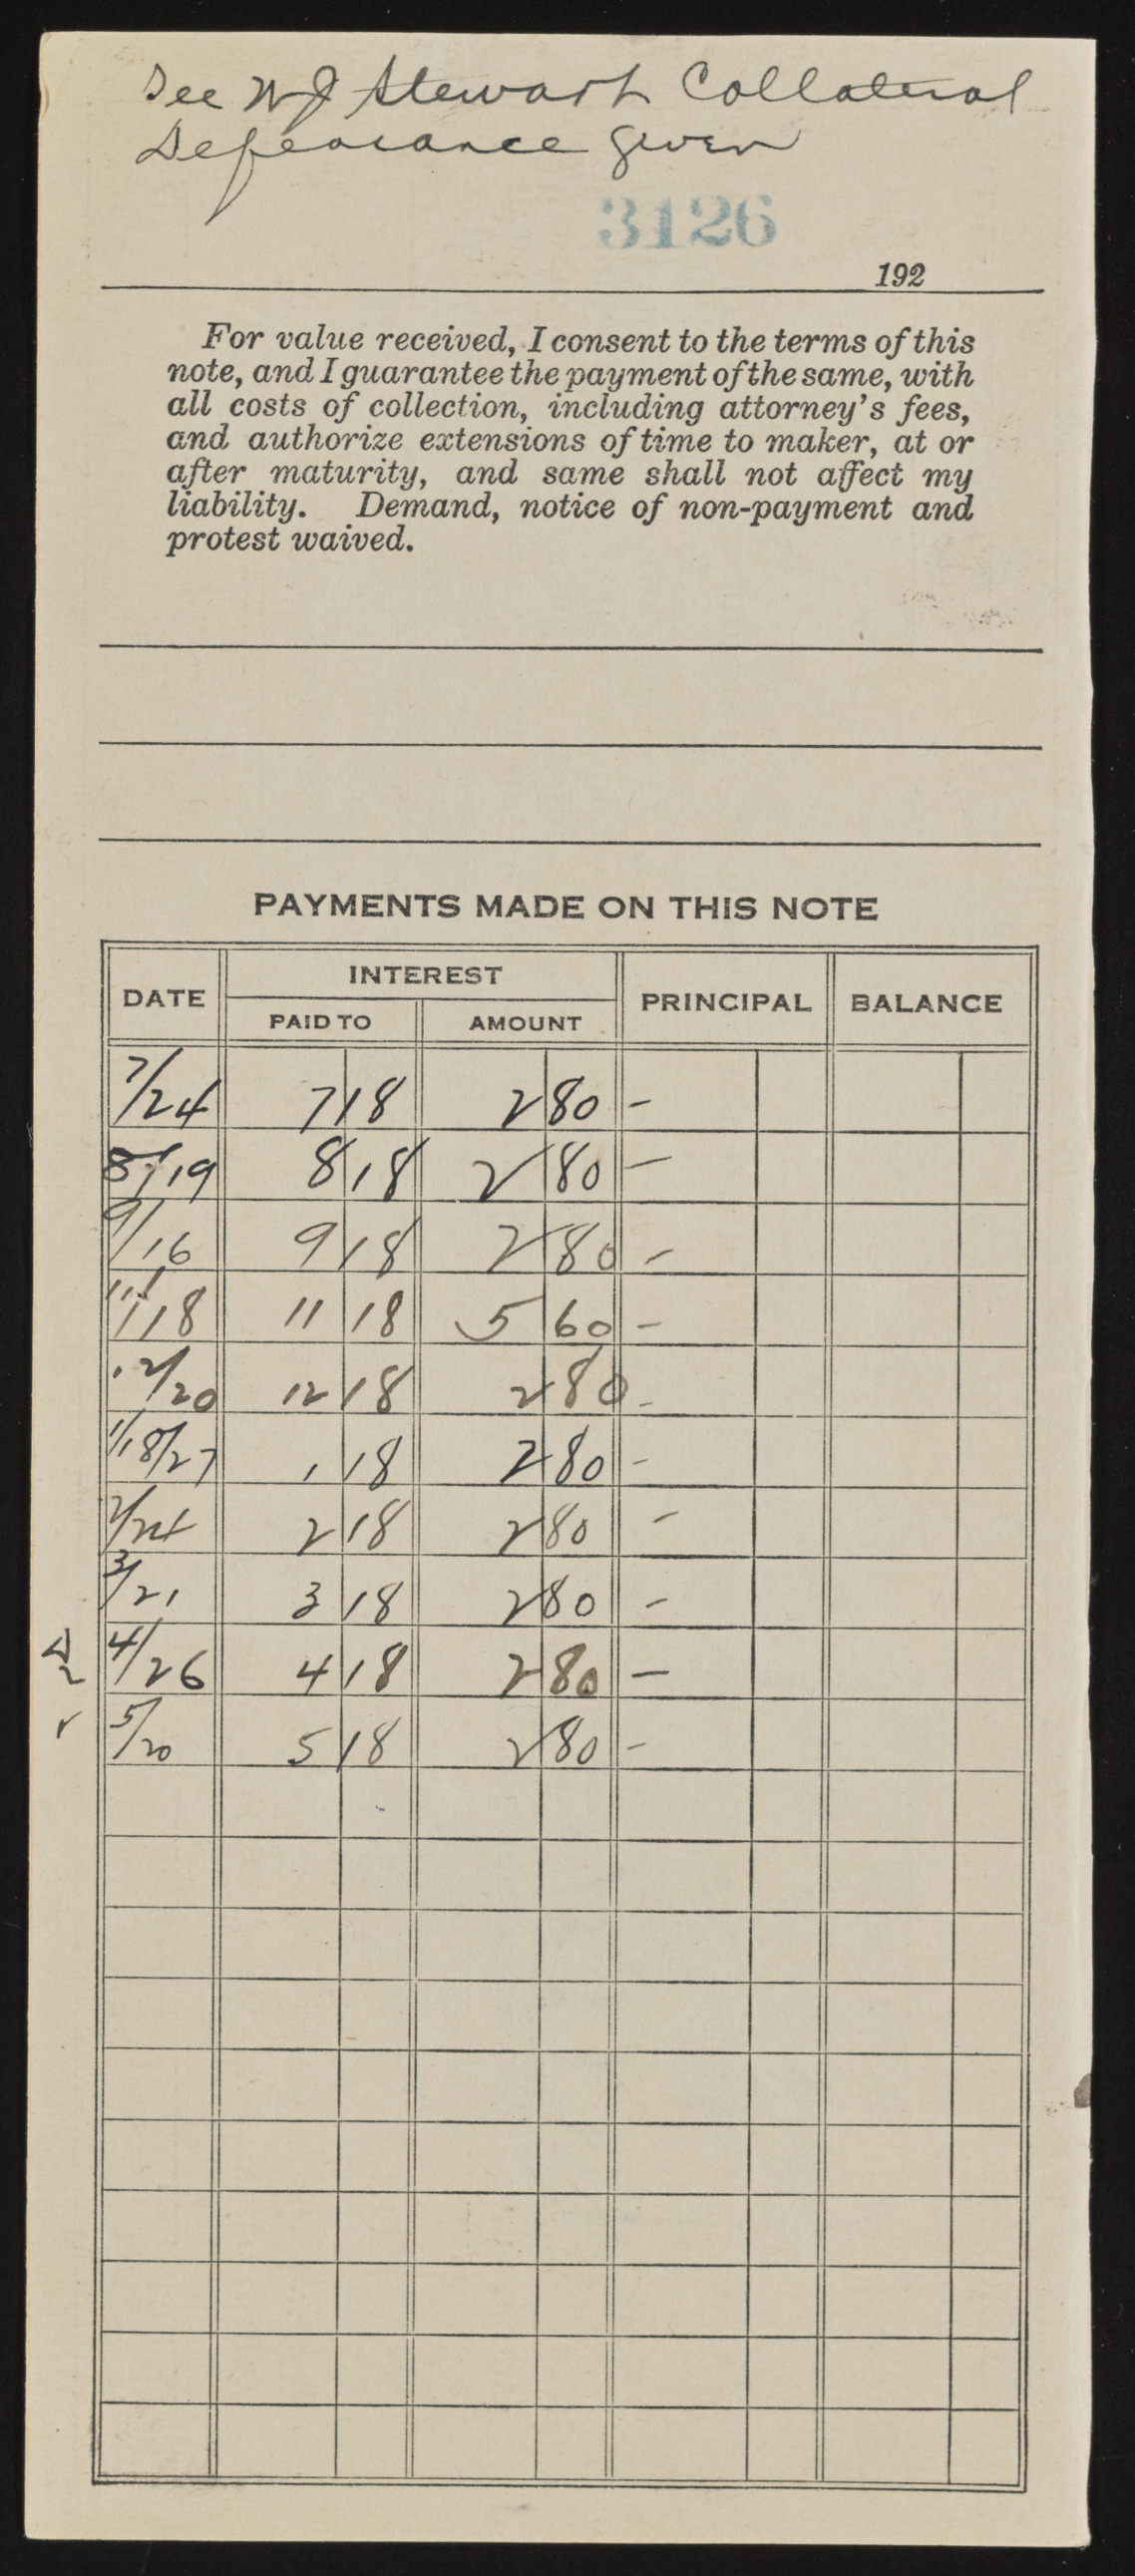 See W J Stewart Collateral
Defeasance given
3126
192
For value received, I consent to the terms of this
note, and I guarantee the payment of the same, with
all costs of collection, including attorney's fees,
and authorize extensions of time to maker, at or
after maturity, and same shall not affect my
liability. Demand, notice of non-payment and
protest waived.
PAYMENTS MADE ON THIS NOTE
DATE INTEREST PRINCIPAL BALANCE
PAID TO AMOUNT
7/24 7 18 2 80 -
8/19 8 18 2 80 -
9/16 9 18 2 80 -
11/18 11 18 5 60 -
12/20 12 18 2 80 -
1/18/27 1 18 2 80 -
2/24 2 18 2 80 -
3/21 3 18 2 80 -
4/26 4 18 2 80 -
5/20 5 18 2 80 -